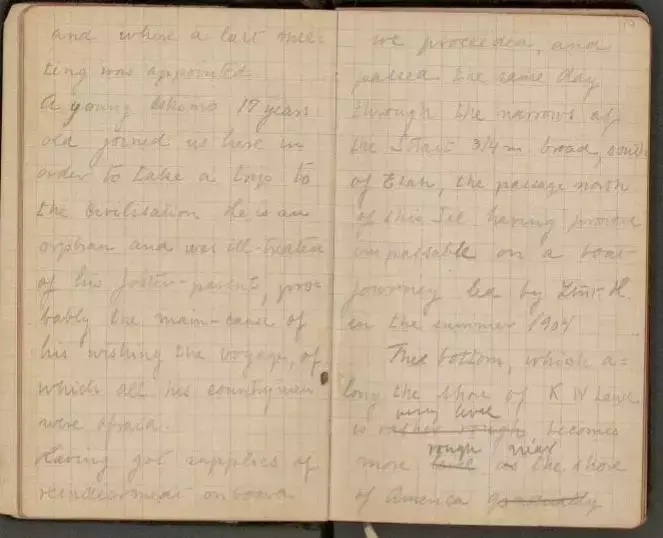 and where a last mee-
ting was appointed
A young Eskimo 17 years
old joined us here in
order to take a trip to
the civilisation He is an
orphan and was ill-treated
of his foster-parents, pro-
bably the main-cause of
his wishing the voyage, of
which all his countrymen
were afraid.
Having got supplies of
reindeermeat onboard
we proceeded, and
passed the same day
through the narrows of
the Strait 3/4 m broad, south
of Etah, the passage north
of this Isl having proved
impassable on a boat
journey led by Lieut. H.
in the summer 1904
The bottom, which a=
long the shore of K W Land
very level
is rather rough becomes
rough near
more as the shore
of America